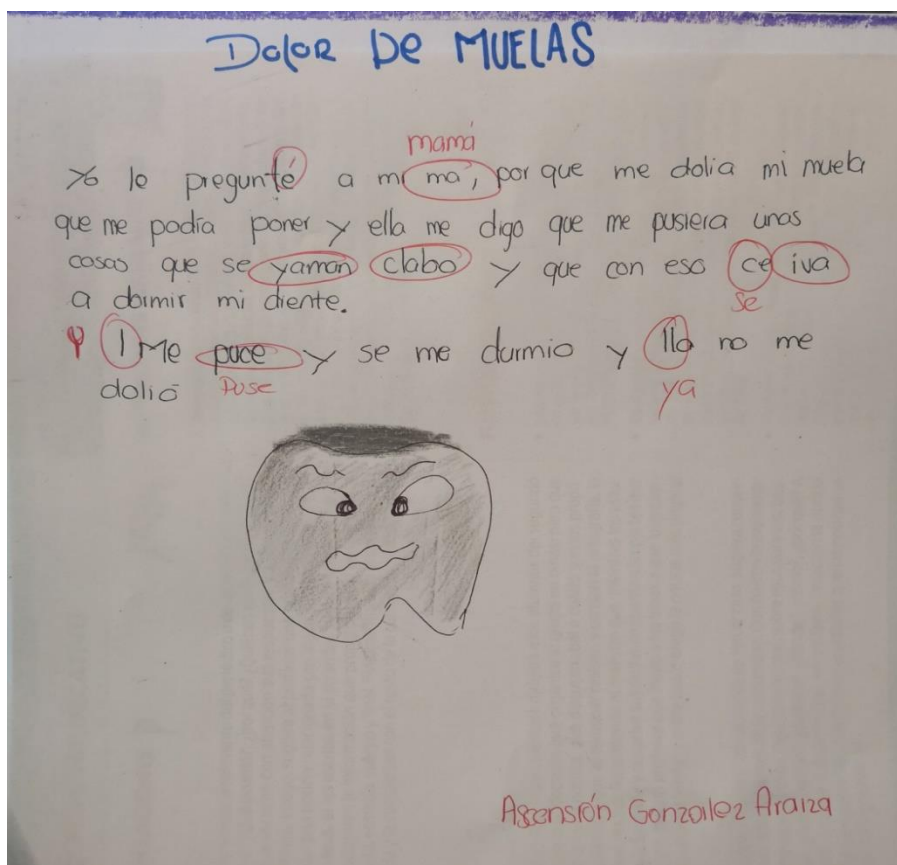 Dolor De MUELAS
mamá
Yo le pregunté a mi ma, por que me dolia mi muela
que me podía poner y ella me digo que me pusiera unas
cosas que se yaman clabo y que con eso ce iva
se
a dormir mi diente.
Y I Me puce y se me durmio y lla no me
dolió puse ya
Ascensión Gonzalez Araiza